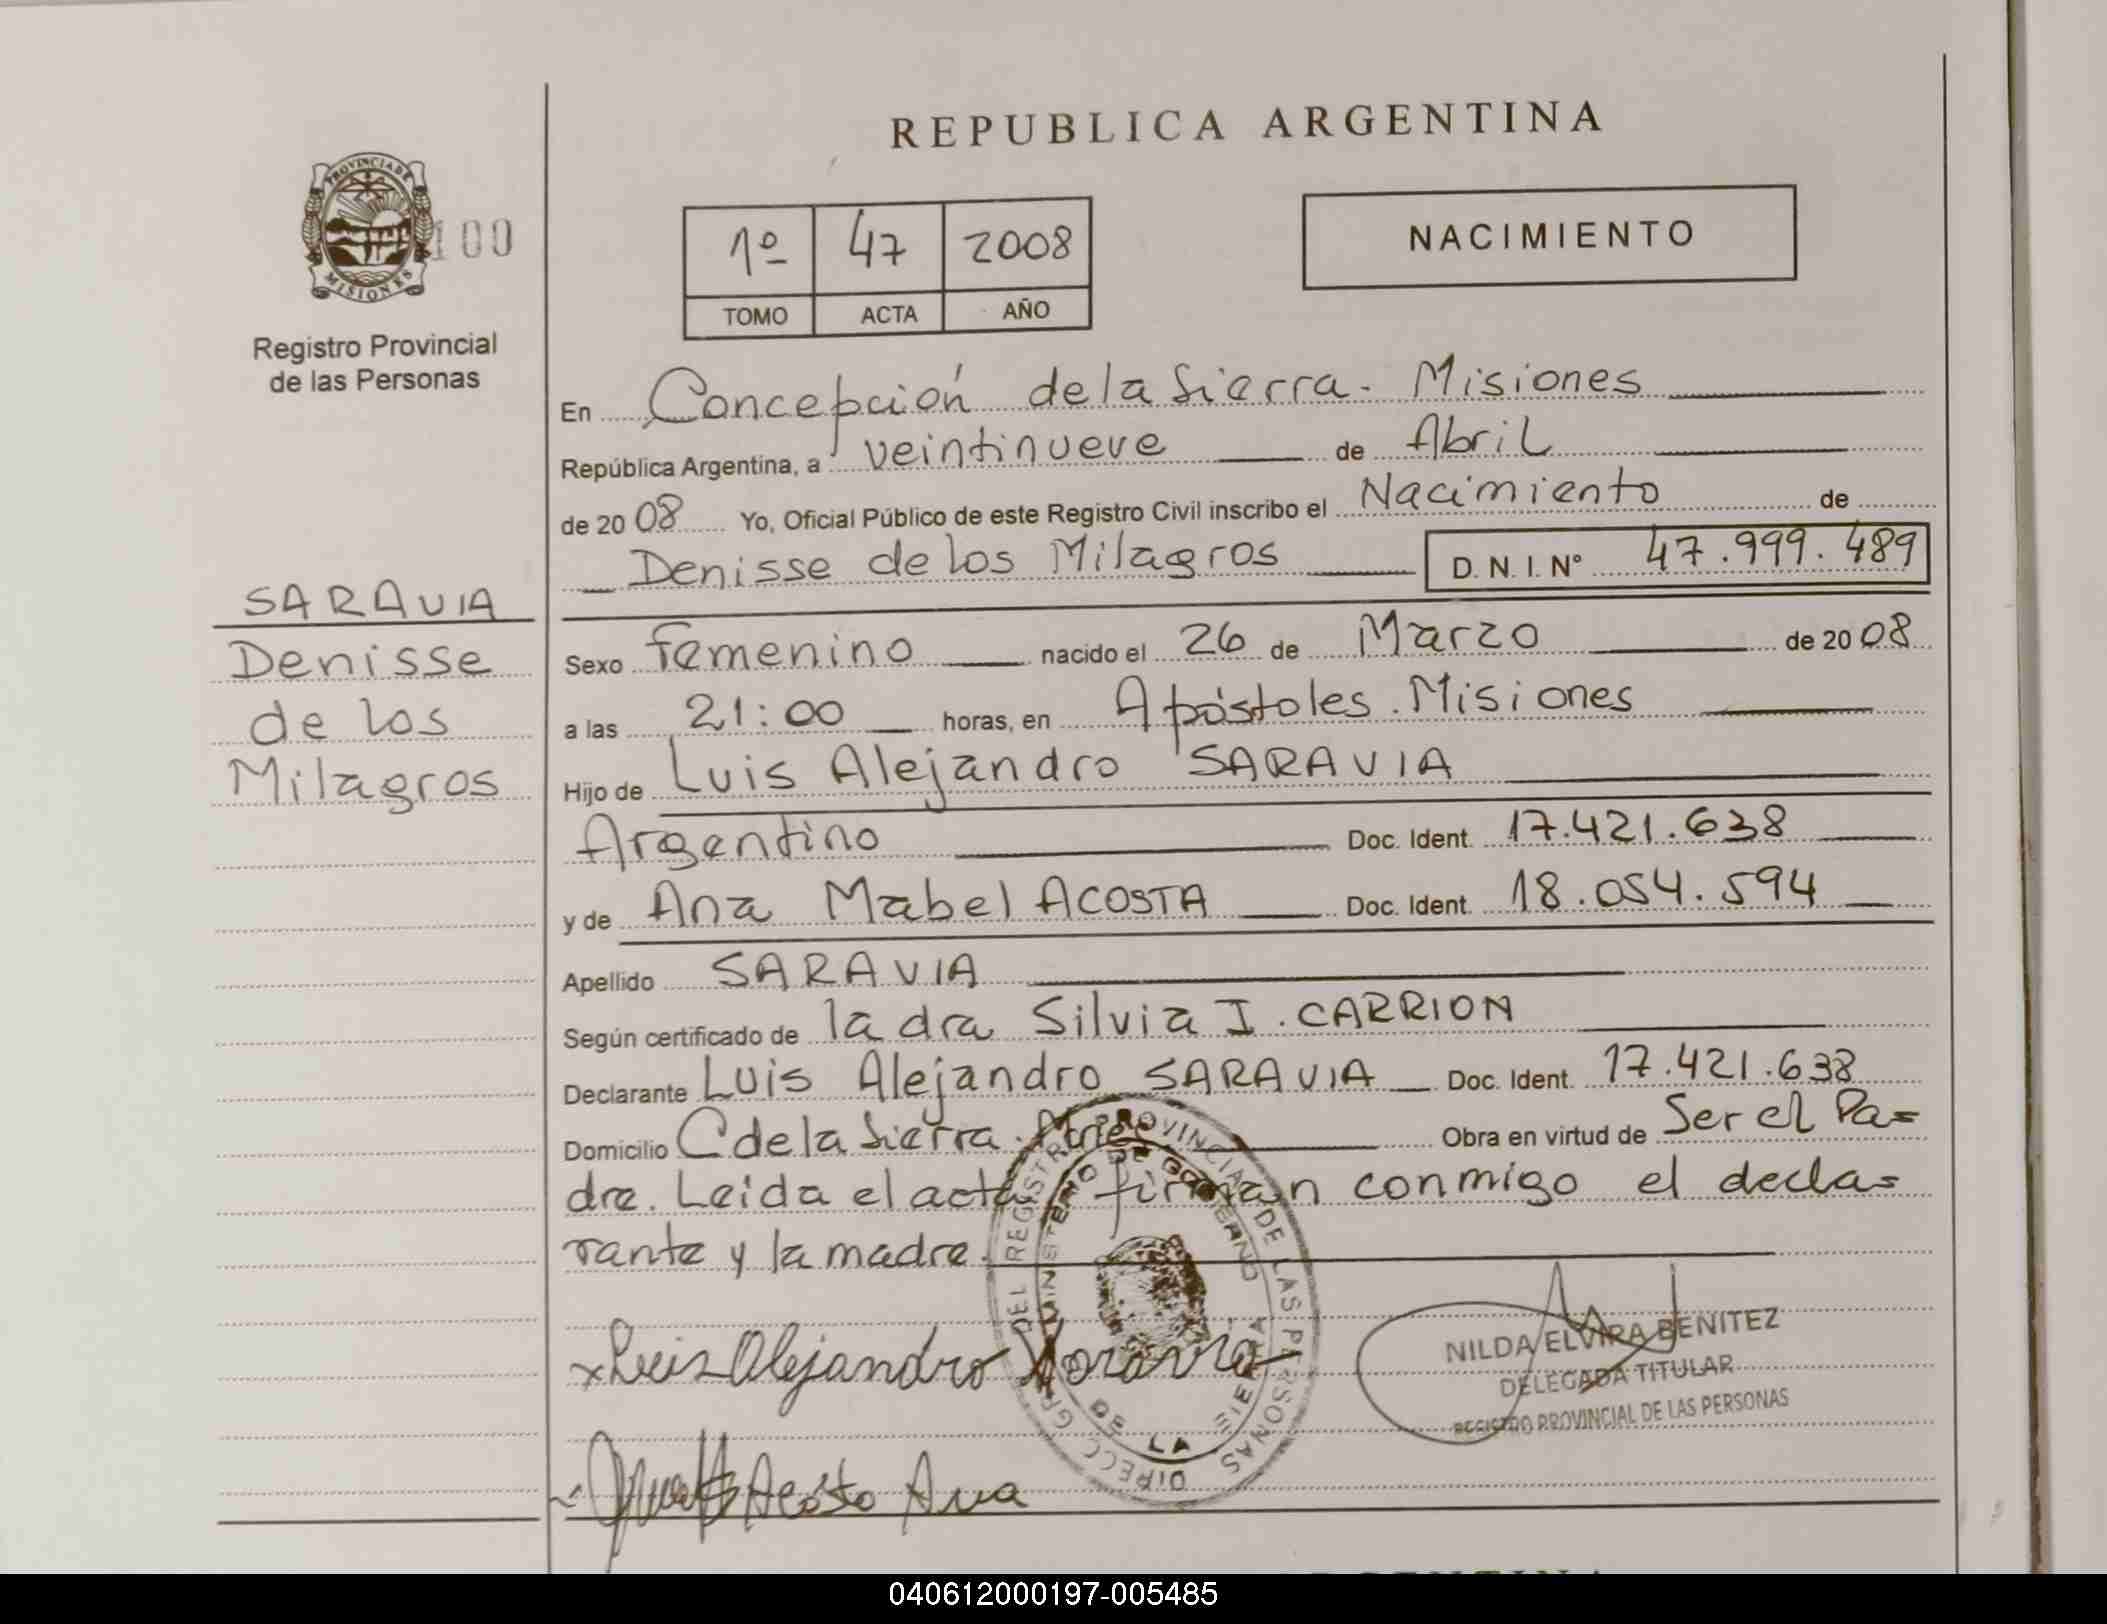 REPUBLICA ARGENTINA
PROVINCIA DE MISIONES
100
Registro Provincial
de las Personas
1º 47 2008
TOMO ACTA AÑO
NACIMIENTO
En Concepción de la Sierra - Misiones
República Argentina, a veintinueve de Abril
de 2008 Yo, Oficial Público de este Registro Civil inscribo el Nacimiento de
Denisse de los Milagros D. N. I. Nº 47.999.489
SARAVIA
Denisse
de los
Milagros
Sexo Femenino nacido el 26 de Marzo de 2008
a las 21:00 horas, en Apóstoles. Misiones
Hijo de Luis Alejandro SARAVIA
Argentino Doc. Ident. 17.421.638
y de Ana Mabel ACOSTA Doc. Ident. 18.054.594
Apellido SARAVIA
Según certificado de la dra Silvia I. CARRION
Declarante Luis Alejandro SARAVIA Doc. Ident. 17.421.638
Domicilio C de la Sierra. Mnes Obra en virtud de Ser el Pa=
dre. Leida el acta firman conmigo el decla=
rante y la madre.
DIRECC GRAL DEL REGISTRO PROVINCIAL DE LAS PERSONAS
MINISTERIO DE GOBIERNO
DE LA SIERRA
x Luis Alejandro Saravia
Acosta Ana
NILDA ELVIRA BENITEZ
DELEGADA TITULAR
REGISTRO PROVINCIAL DE LAS PERSONAS
040612000197-005485